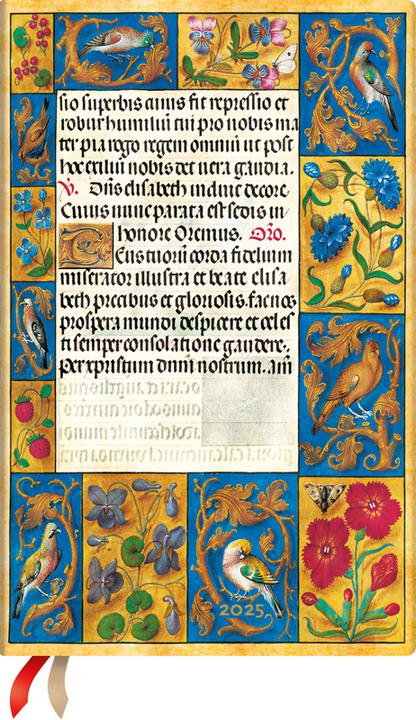 sio superbis cuius fit repressio et
robur humiliū tui pro nobis ma
ter pia rogo regem omniū ut post
hoc exiliū nobis det uera gaudia.
℣. Dn̄s elisabeth induit decore
Cuius nunc parata est sedis in
honore Oremus. Or̄o.
DEus tuorū corda fidelium
miserator illustra et beate elisa
beth precibus et gloriosis. fac nos
prospera mundi despicere et celes
ti semper consolatione gaudere.
Per xpristum dnm̄ nostrum. am̄
2025